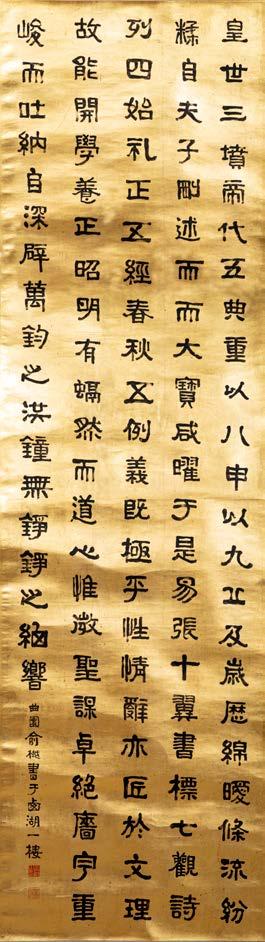 皇世三墳帝代五典重以八申以九丘及歲歷綿曖條流紛
糅自夫子刪述而而大寶咸曜于是易張十翼書標七觀詩
列四始礼正五經春秋五例義既極乎性情辭亦匠於文理
故能開學養正昭明有融然而道心惟微聖謨卓絕牆宇重
峻而吐納自深辟萬鈞之洪鐘無錚錚之細響
曲園俞樾書于西湖一樓